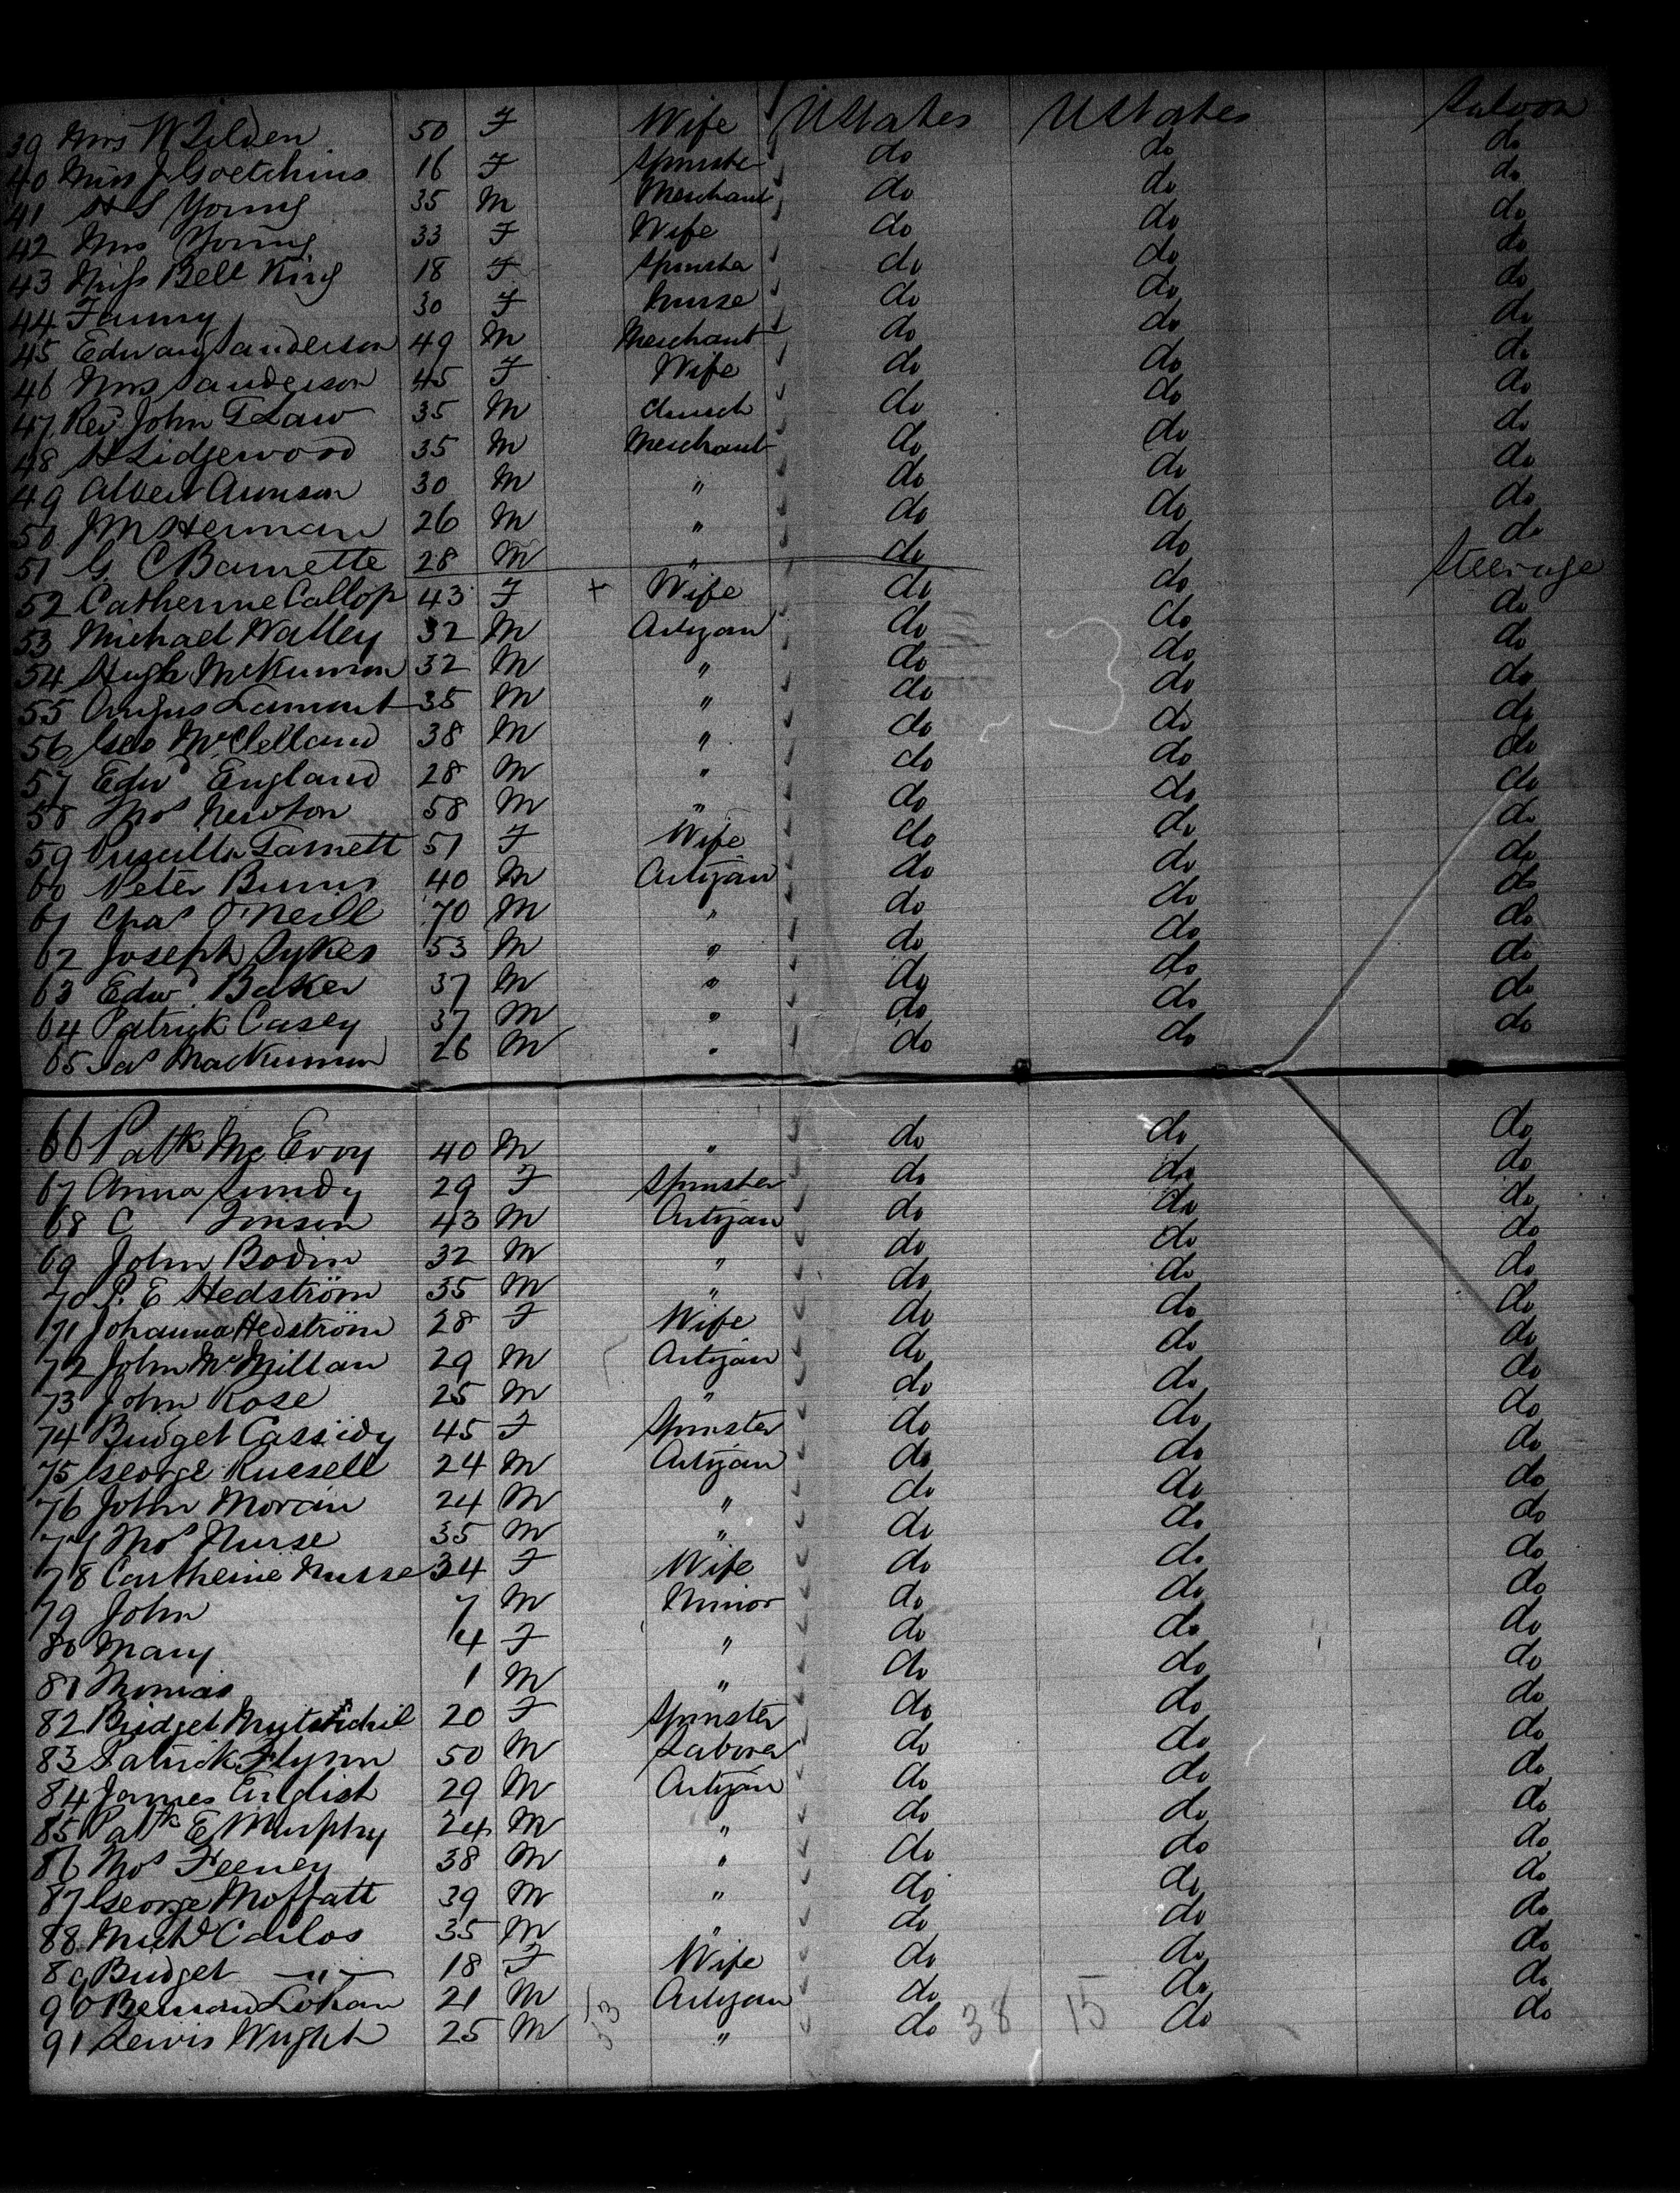 39 Mrs W Tilden 50 F Wife UStates UStates Saloon
40 Miss J Goetchius 16 F Spinster do do do
41 H S Young 35 M Merchant do do do
42 Mrs Young 33 F Wife do do do
43 Miss Bell King 18 F Spinster do do do
44 Fanny 30 F Nurse do do do
45 Edward Sanderson 49 M Merchant do do do
46 Mrs Sanderson 45 F Wife do do do
47 Rev John T Law 35 M Church do do do
48 H Lidgerwood 35 M Merchant do do do
49 Albert Aunson 30 M " do do do
50 J M Herman 26 M " do do do
51 G. C Barnette 28 M " do do do
52 Catherine Callop 43 F + Wife do do Steerage
53 Michael Nalley 32 M Artizan do do do
54 Hugh McKinnon 32 M " do do do
55 Angus Lamont 35 M " do do do
56 Geo McClelland 38 M " do do do
57 Edwd England 28 M " do do do
58 Thos Newton 58 M " do do do
59 Priscilla Tarnett 51 F Wife do do do
60 Peter Burns 40 M Artizan do do do
61 Chas O'Neill 70 M " do do do
62 Joseph Sykes 53 M " do do do
63 Edwd Baker 37 M " do do do
64 Patrick Casey 37 M " do do do
65 Jas MacKinnon 26 M " do do do
66 Patk McEvoy 40 M " do do do
67 Anna Lundy 29 F Spinster do do do
68 C Jonson 43 M Artizan do do do
69 John Bodin 32 M " do do do
70 P. E Hedström 35 M " do do do
71 Johanna Hedström 28 F Wife do do do
72 John McMillan 29 M Artizan do do do
73 John Rose 25 M " do do do
74 Bridget Cassidy 45 F Spinster do do do
75 George Russell 24 M Artizan do do do
76 John Moran 24 M " do do do
77 Thos Nurse 35 M " do do do
78 Catherine Nurse 34 F Wife do do do
79 John 7 M Minor do do do
80 Mary 4 F " do do do
81 Thomas 1 M " do do do
82 Bridget 20 F Spinster do do do
83 Patrick Flynn 50 M Laborer do do do
84 James English 29 M Artizan do do do
85 Patk E Murphy 24 M " do do do
86 Thos Feeney 38 M " do do do
87 George Moffatt 39 M " do do do
88 Michl Carlos 35 M " do do do
89 Bridget —"— 18 F Wife do do do
90 Bernard Lohan 21 M Artizan do do do
91 Lewis Wright 25 M " do 38 15 do do